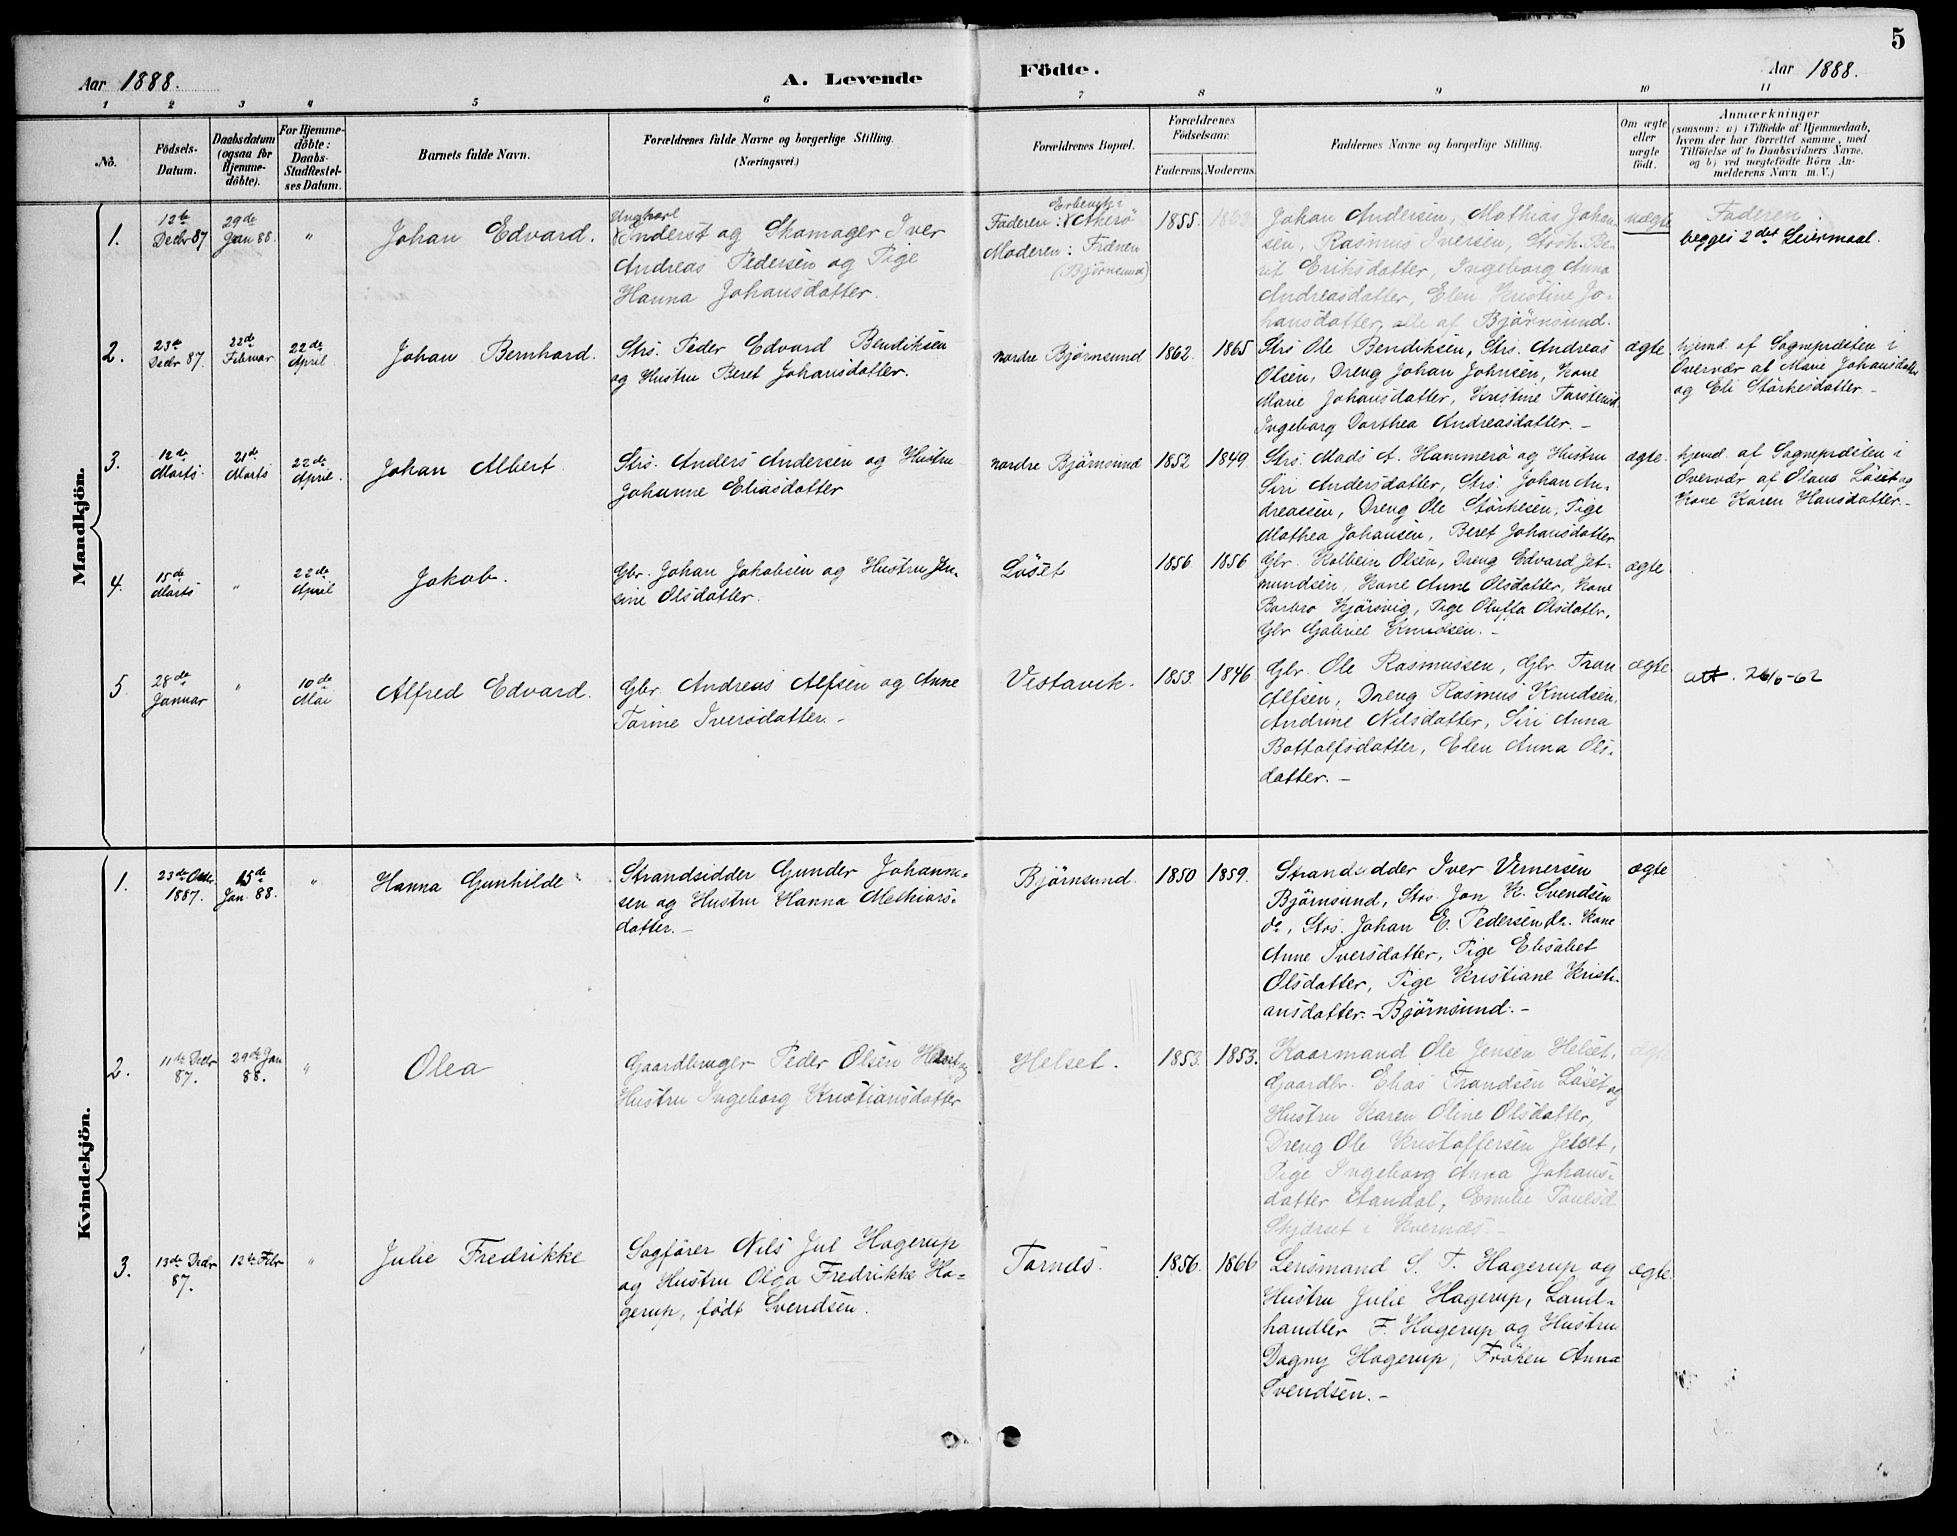 5
Aar 1888. A. Levende Födte. Aar 1888.
1 2 3 4 5 6 7 8 9 10 11
No.
Födsels-Datum.
Daabsdatum (ogsaa for Hjemme-döbte).
For Hjemme-döbte: Daabs-Stadfestel-ses Datum.
Barnets fulde Navn.
Forældrenes fulde Navne og borgerlige Stilling. (Næringsvei.)
Forældrenes Bopæl.
Forældrenes Födselsaar.
Faderens. Moderens.
Faddernes Navne og borgerlige Stilling.
Om ægte eller uægte födt.
Anmærkninger
(saasom: a) i Tilfælde af Hjemmedaab, hvem der har forrettet samme, med Tilföielse af to Daabsvidners Navne, og b) ved uægtefödte Börn An-melderens Navn m. V.)
Mandkjön.
1.
Decbr 87
29de Jan 88.
"
Johan Edvard.
Ungkarl
og Skomager Iver
Andreas Pedersen og Pige
Hanna Johansdatter.
Faderen: Akerö
Moderen: Frænen
(Björnsund)
1855. 1863
Johan Andersen, Mathias Johan-
sen, Rasmus Iversen, Be-
rit Eriksdatter, Ingeborg Anna
Andreasdatter, Elen Kristine Jo-
hansdatter, alle af Björnsund.
uægte
Faderen
begges 2det Leiermaal.
2.
23de Decbr 87.
22de Februar
22de April
Johan Bernhard.
Strs. Peder Edvard Bendiksen
og Hustru Beret Johansdatter.
nordre Björnsund
1862. 1865
Strs Ole Bendiksen, Strs. Andreas
Olsen, Dreng Johan Johnsen, Kone
Marie Johansdatter, Kristine Torstensd.
Ingeborg Dorthea Andreasdatter. –
ægte
hjemd. af Sogneprésten i
Overvær af Marie Johansdatter
og Eli Störkesdatter –
3.
12de Marts.
21de Marts
22de April.
Johan Albert.
Strs. Anders Andersen og Hustru
Johanne Eliasdatter
nordre Björnsund
1852 1849.
Strs. Mads A. Hammerö og Hustru
Siri Andersdatter, Strs. Johan An-
dreassen, Dreng Ole Störkesen, Pige
Mathea Johansen, Beret Johansdatter
ægte.
hjemd. af Sogneprésten i
Overvær af Olaus Löset og
Kone Karen Hansdatter. –
4.
15de Marts
"
22de April
Jakob.
Gbr. Johan Jakobsen og Hustru Jen-
sine Olsdatter.
Löset
1856 1856
Gbr. Kolbein Olsen, Dreng Edvard Jet-
mundsen, Kone Anne Olsdatter, Kone
Barbro Kjörsvig, Pige Oluffa Olsdatter,
Gbr Gabriel Knudsen. –
ægte
5.
28de Januar
"
10de Mai
Alfred Edvard.
Gbr. Andreas Alfsen og Anne
Torine Iversdatter. –
Vestavik.
1853. 1846
Gbr. Ole Rasmussen, Gbr. Tron
Alfsen, Dreng Rasmus Knudsen,
Andrine Nilsdatter, Siri Anna
Bottolfsdatter, Elen Anna Ols-
datter. –
ægte
att. 26/6-62
Kvindekjön.
1.
1887.
15de Jan. 88.
"
Hanna Gunhilde
Strandsidder Gunder Johanne-
sen og Hustru Hanna Mathias-
datter. –
Björnsund.
1850 1859.
Strandsidder Iver Vernersen
Björnsund, Strs. Jon K. Svendsen
do, Strs. Johan E. Pedersen do. Kone
Anne Iversdatter, Pige Elisabet
Olsdatter, Pige Kristiane Kristi-
ansdatter. – Björnsund. –
ægte
2.
11de Decbr 87.
29de Jan 88.
"
Olea
Gaardbruger Peder Olsen Helset og
Hustru Ingeborg Kristiansdatter
Helset.
1853. 1853.
Kaarmand Ole Jensen Helset,
Gaardbr. Elias Trondsen Löset og
Hustru Karen Oline Olsdatter,
Dreng Ole Kristoffersen
Pige Ingeborg Anna Johans-
datter Aandal, Emilie Poulsd
i Kvernæs. –
ægte
3.
13de Decbr 87.
12te Febr
"
Julie Fredrikke
Sagförer Nils Jul Hagerup
og Hustru Olga Fredrikke Ha-
gerup, födt Svendsen.
Tornæs.
1856. 1866
Lensmand S. T. Hagerup og
Hustru Julie Hagerup, Land-
handler F. Hagerup og Hustru
Dagny Hagerup, Fröken Anna
Svendsen. –
ægte.